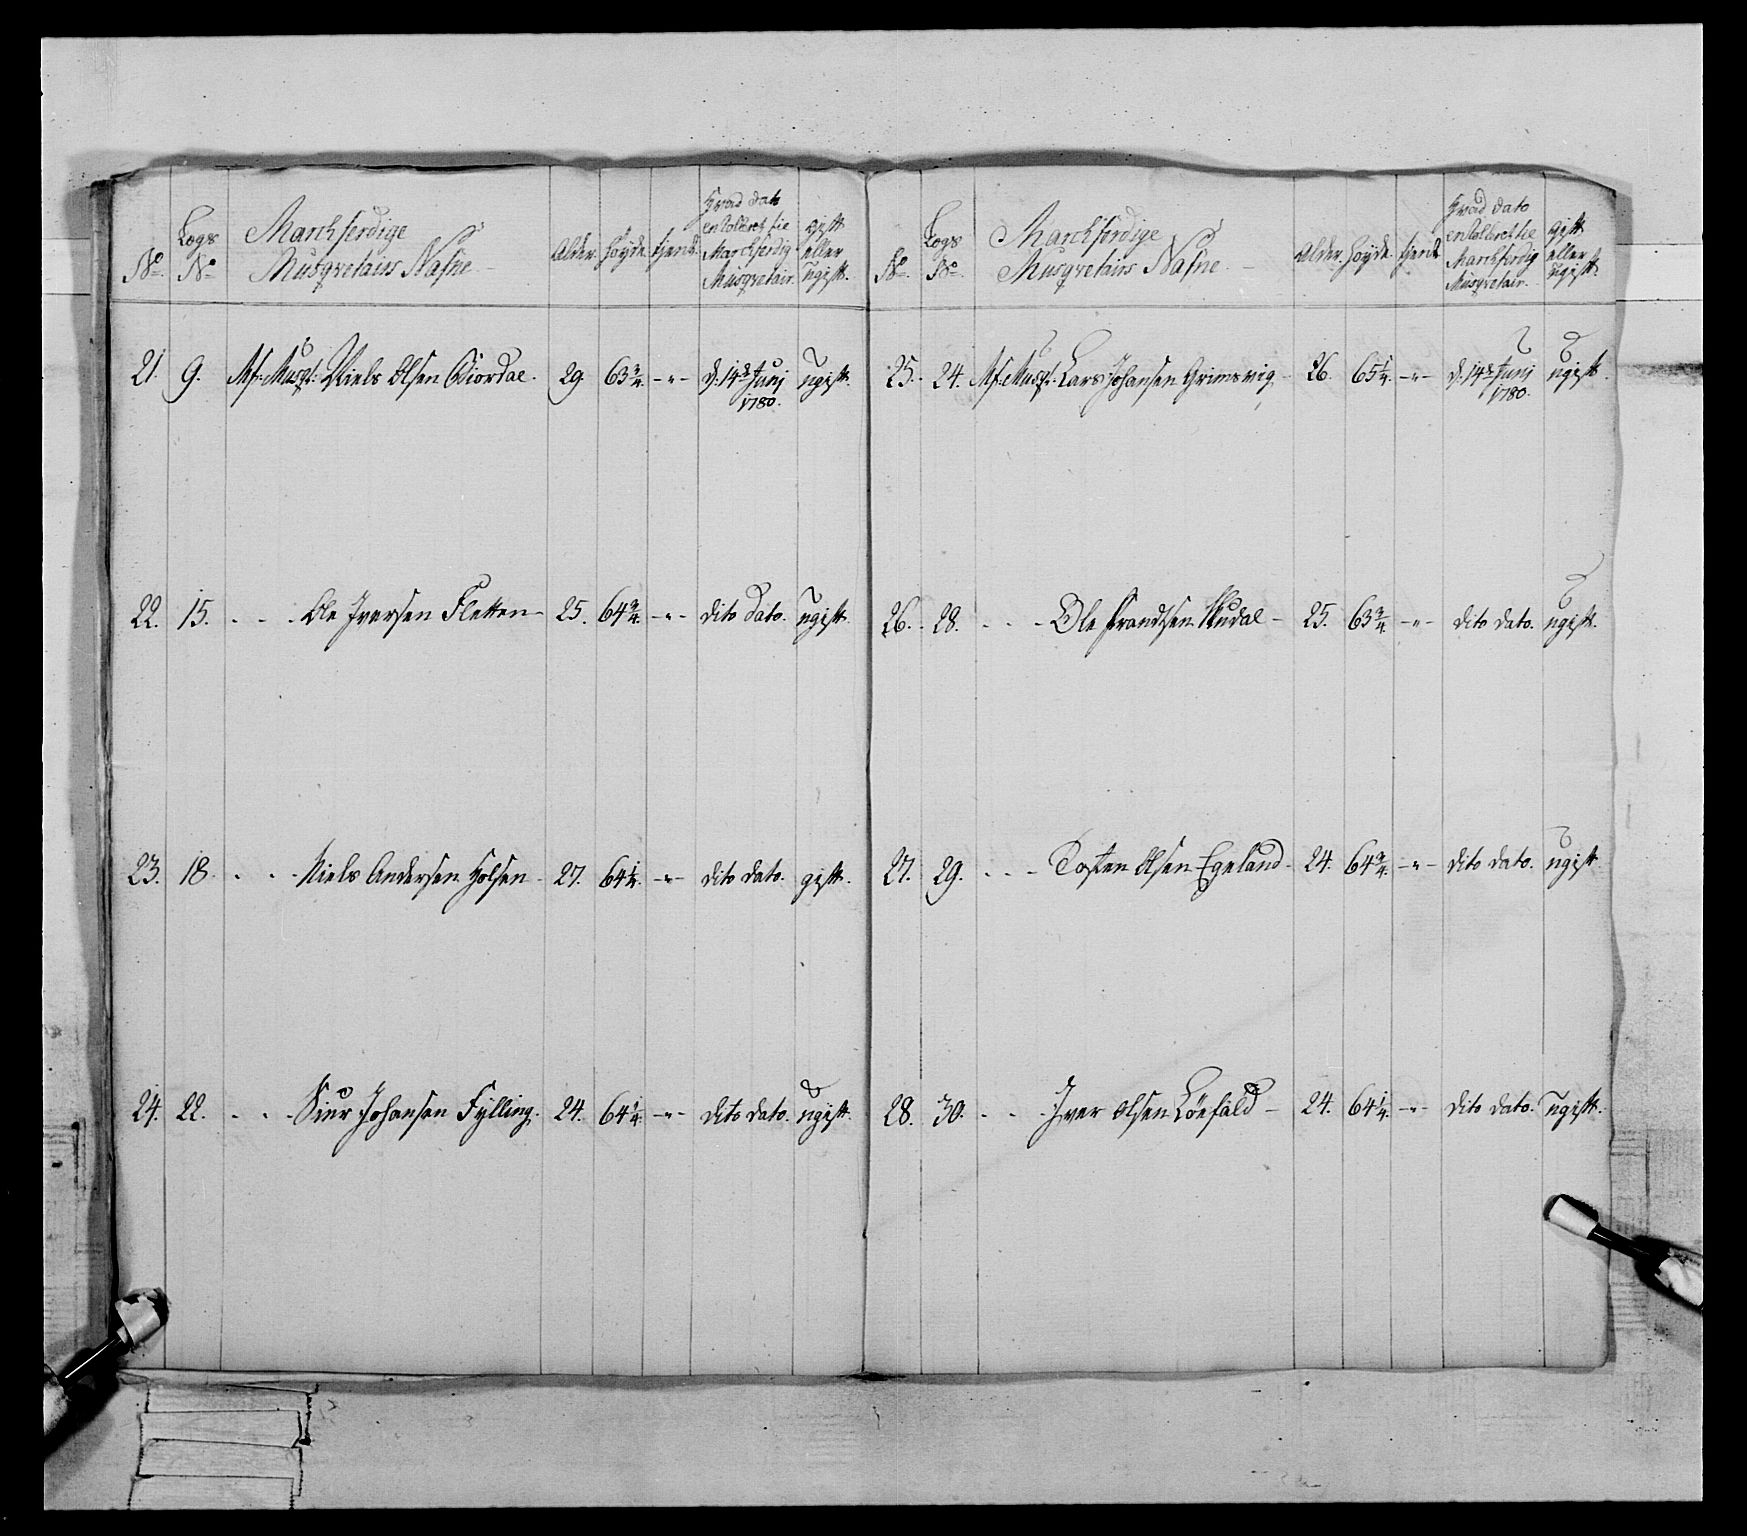 No. Logs No. Marchferdige Musqvetairs Nafne Alder. Höyde. tjent. Hvad Dato enrolleret til Marchferdig Musqvetair. gift eller ugift.
21. 9. Mf: Musqt: Niels Olsen 29. 63 3/4. -"- d. 14de Junj 1780. ugift.
22. 15. - - - Ole Iversen Fletten - 25. 64 3/4. -"- dito dato. ugift.
23. 18. - - - Niels Andersen Holsen - 27. 64 1/4. -"- dito dato. gift.
24. 22. - - - Siur Johansen Fylling. 24. 64 1/4. -"- dito dato. ugift.
No. Logs No. Marchferdige Musqvetairs Nafne. Alder. Höyde. tjent. Hvad Dato enrolleret til Marchferdig Musqvetair. gift eller ugift.
25. 24. Mf: Musqt: Lars Johansen Grimsvig 26. 65 1/4. -"- d. 14de Junj 1780. ugift.
26. 28. - - - Ole 25. 63 3/4. -"- dito dato. ugift.
27. 29. - - - Tosten Olsen Egeland - 24. 64 3/4. -"- dito dato. ugift.
28. 30. - - - Iver Olsen Löefald - 24. 64 1/4. -"- dito dato. ugift.